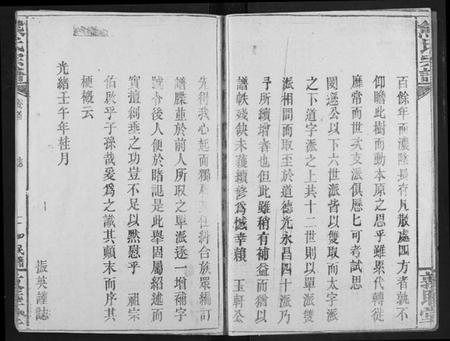 百餘年而濃陰長存凡散處四方者孰不
仰瞻此樹而動本原之思乎雖累代轉徙
靡常而世次支派俱歷七可考試思
閔逵公以下六世派皆以雙取而太字派
之下道字派之上共十二世則以單派雙
派相間而取至於道德光永昌四十派乃
予所續增者也但此雖稍有補益而猶以
譜帙殘缺未獲續修為憾幸賴 玉軒公
先得我心起而獨 任紳合族眾編訂
譜牒並於前人所取之單派逐一增補字
號令後人便於諳記是此舉固屬紹述而
實擅創垂之功豈不足以慰 祖宗
伯啟乎子孫哉爰為之識其顛末而序其
梗概云
光緒壬午年桂月
振英謹誌
熊氏宗譜
誌
義聚堂